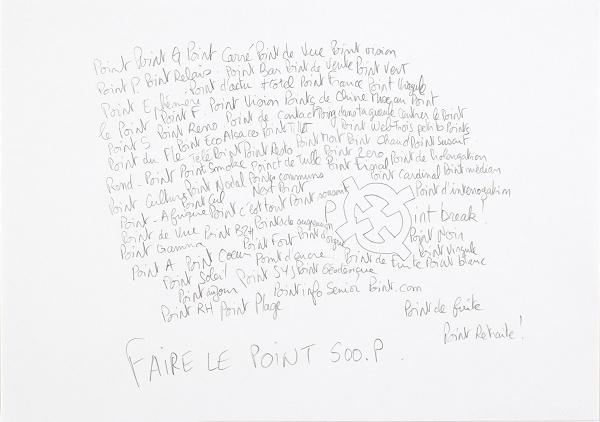 Point Point G Point Carré Point de Vue Point vision
Point P. Point Relais. Point Bar Point de Vente Point Vert
Point d'actu Hotel Point France Point Virgule
Point Ephémère Point F. Point Vision Points de Chine Moyen Point
Le Point Point Reno Point de Contact Poing dans ta gueule Centrer le Point
Point S Point Eco Alsace Point TILT Point Web Trois petits Points
Point du Fle Télé Point Point Resto Point Mort Point Chaud Point Sussurf.
Rond-Point Point Smoke Point de Tulle Point Zero Point de Prolongation
Point Culture Point Nodal Points communs Point Cardinal Point médian
Point Gel Next Point Point d'interrogation
Point-Afrique Point c'est tout Point P oint break!
Point de Vue Point B2H Points de Point Noir
Point Gamma Point Fort Point d'orgue Point Virgule
Point A. Point Coeur Point d'encre Point de Fuite Point blanc
Point Soleil Point SYS Point Géodésique
Point Point info Senior Point.com
Point RH Point Plage Point de fuite
Point Retraite!
FAIRE LE POINT 500.P.